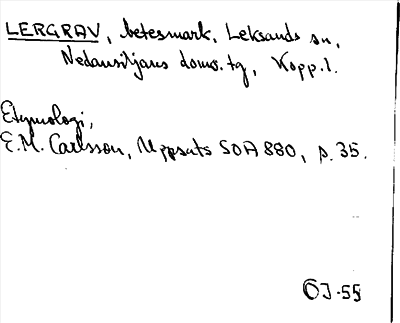 LERGRAV, betesmark, Leksands sn,
Nedansiljans doms.tg, Kopp.l.
Etymologi,
E.M. Carlsson, Uppsats SOA 880, s. 35.
OJ-55